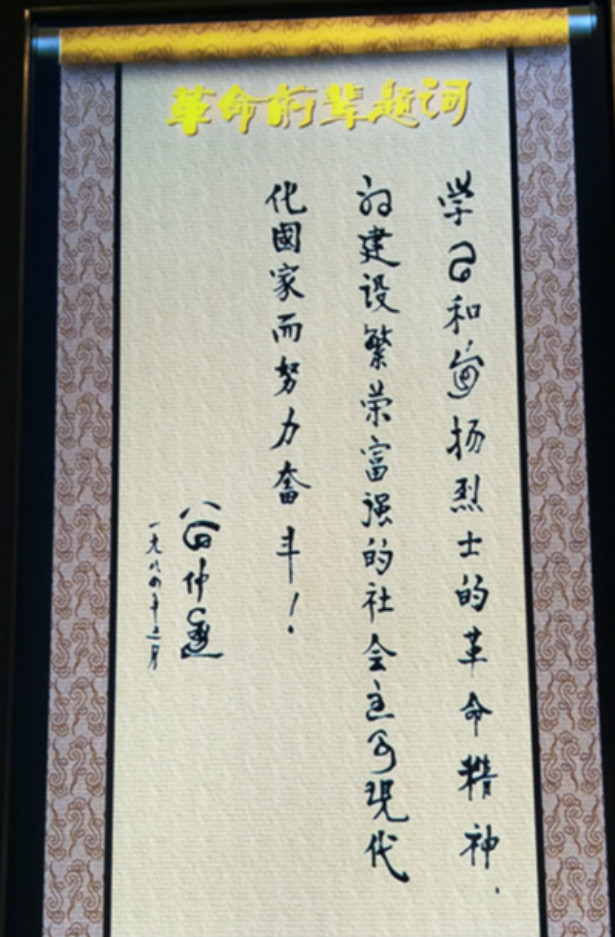 革命前辈题词
学习和扬烈士的革命精神，
为建设繁荣富强的社会主义现代
化國家而努力奋斗！
仲
一九八四年月